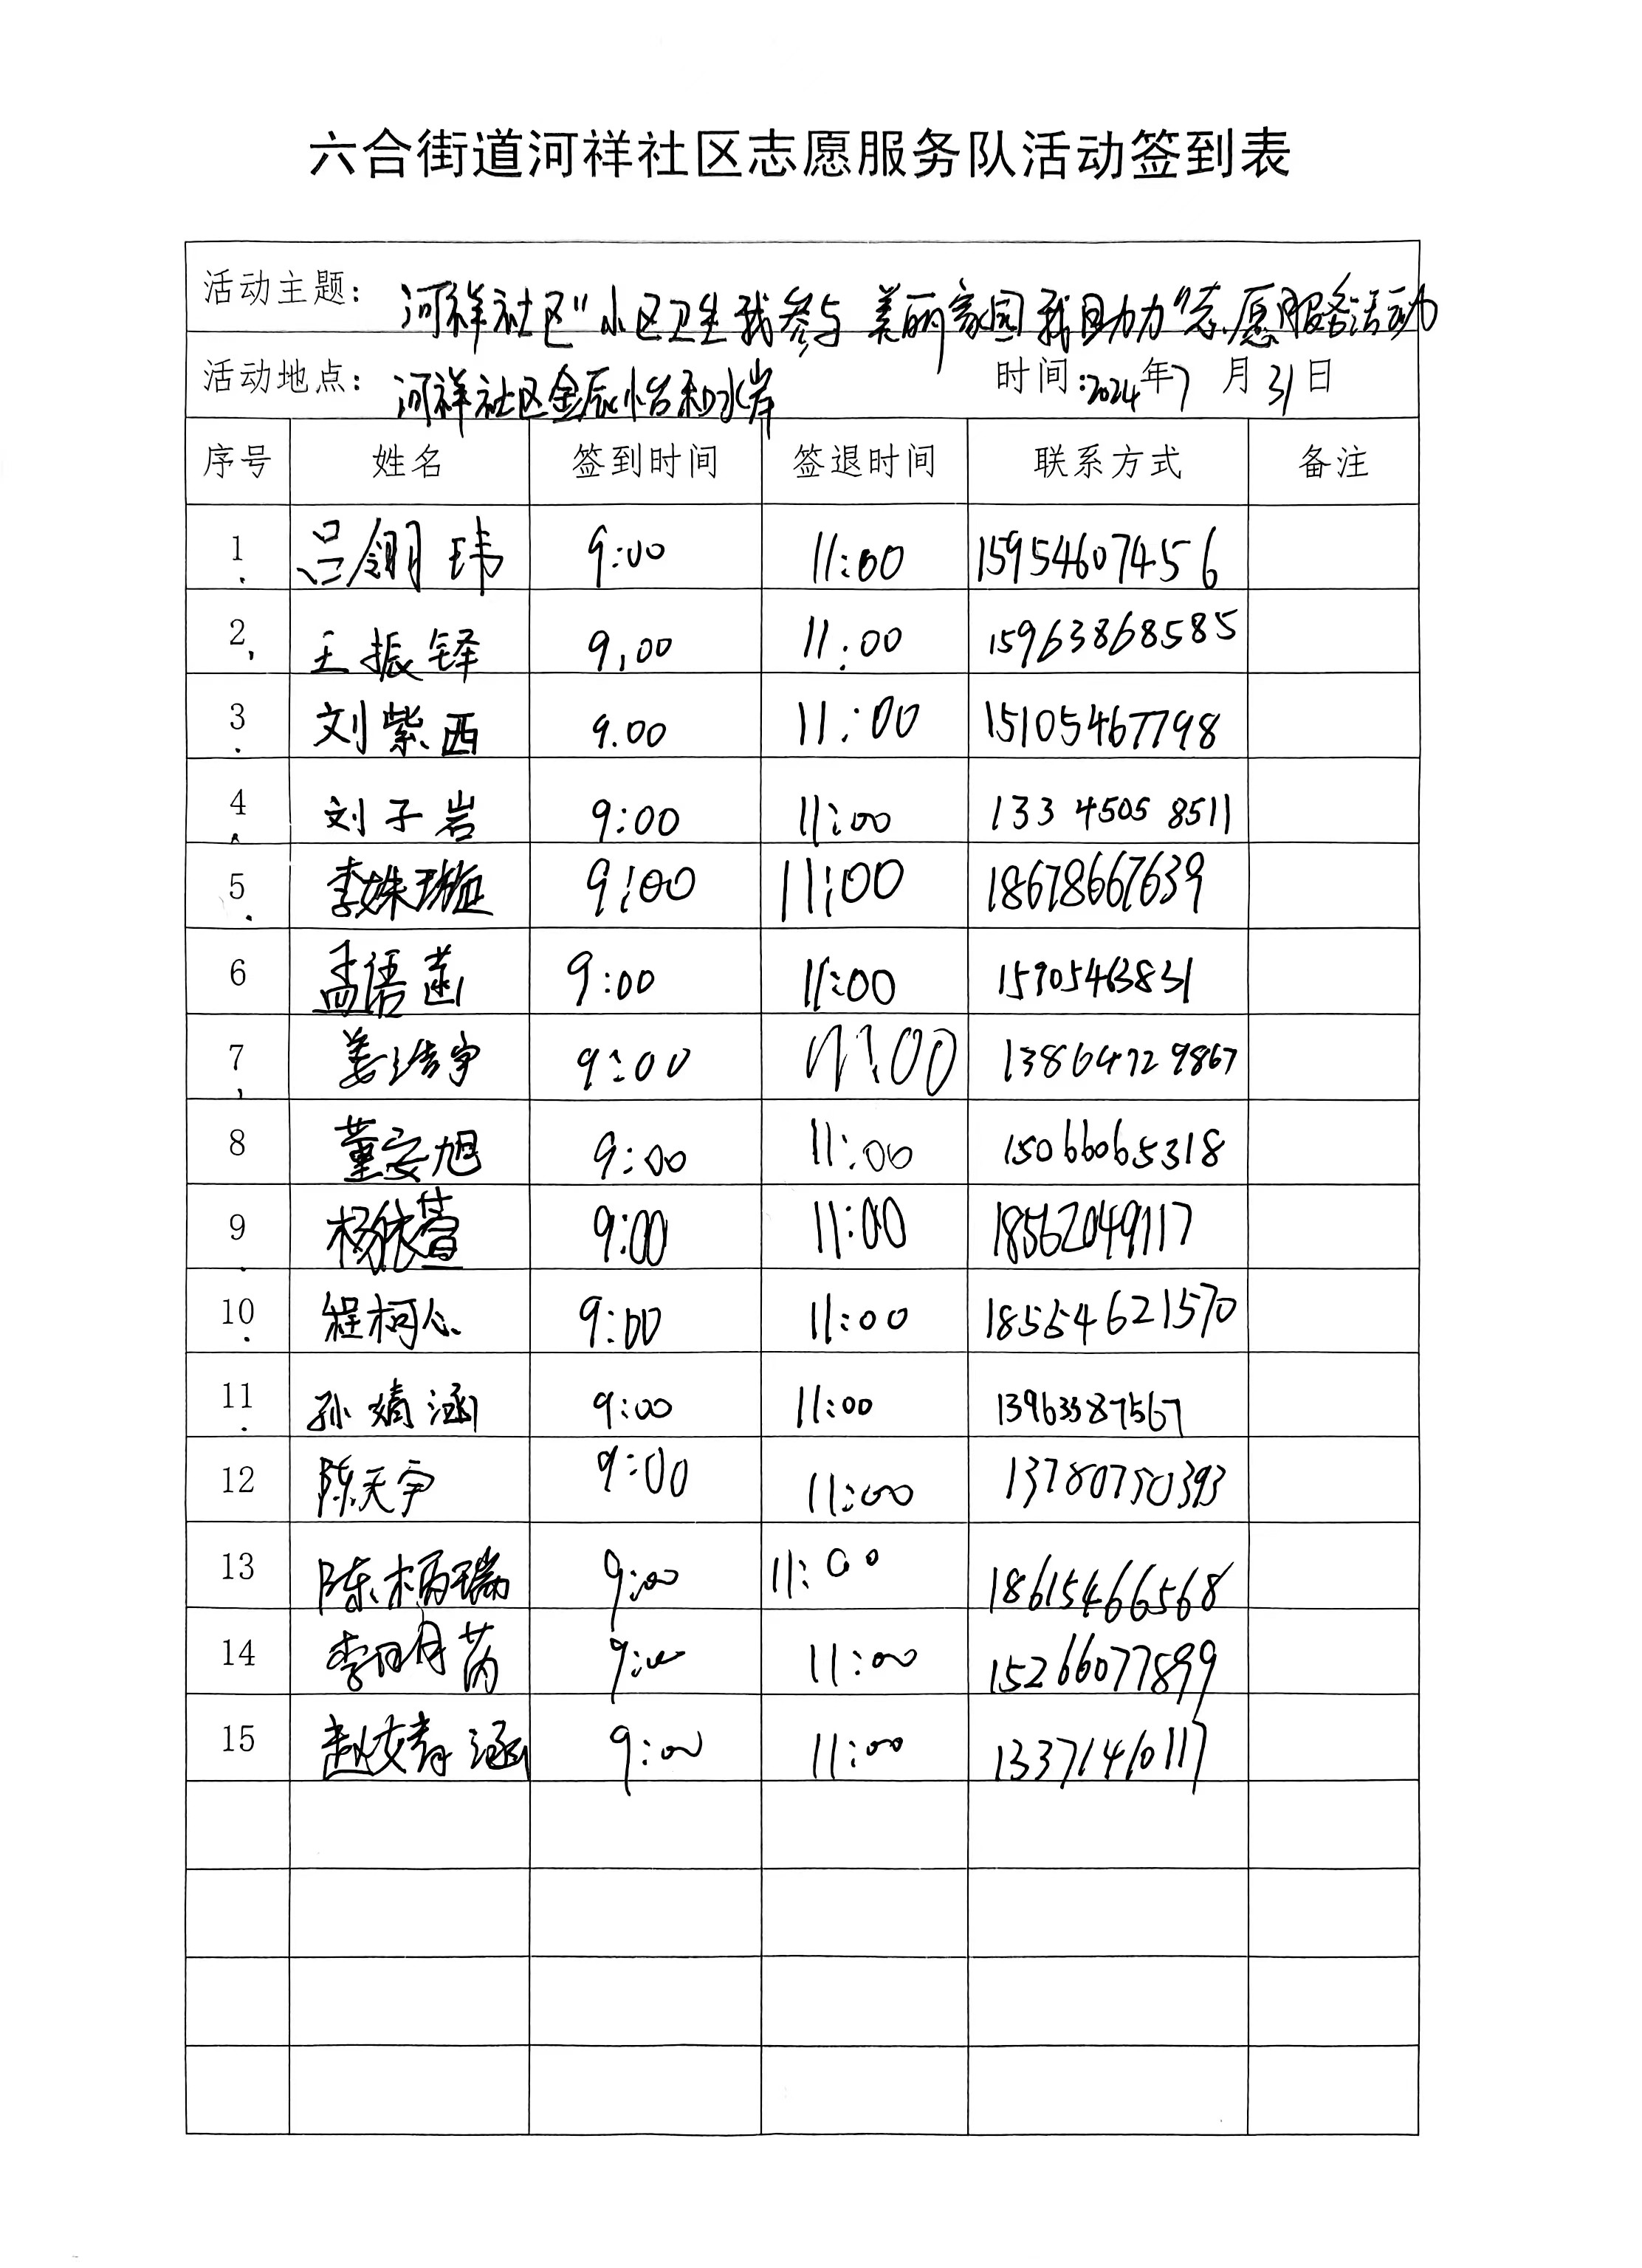 六合街道河祥社区志愿服务队活动签到表
活动主题：河祥社区"小区卫生我参与 美丽家园我助力"志愿服务活动
活动地点：河祥社区金辰怡和水岸 时间：2024年7月31日
序号 姓名 签到时间 签退时间 联系方式 备注
1 吕翎玮 9:00 11:00 15954607456
2 王振铎 9:00 11:00 15963868585
3 刘紫西 9.00 11:00 15105467798
4 刘子岩 9:00 11:00 133 4505 8511
5 李姝璇 9:00 11:00 18678667639
6 孟语菡 9:00 11:00 15905463831
7 姜浩宇 9:00 11:00 13864729867
8 董安旭 9:00 11:00 15066065318
9 杨依萱 9:00 11:00 18562049117
10 程柯心 9:00 11:00 18554621570
11 孙嫡涵 9:00 11:00 13963387567
12 陈天宇 9:00 11:00 13780750393
13 陈柄瑞 9:00 11:00 18615466568
14 李明芮 9:00 11:00 15266077899
15 赵婧涵 9:00 11:00 13371410117